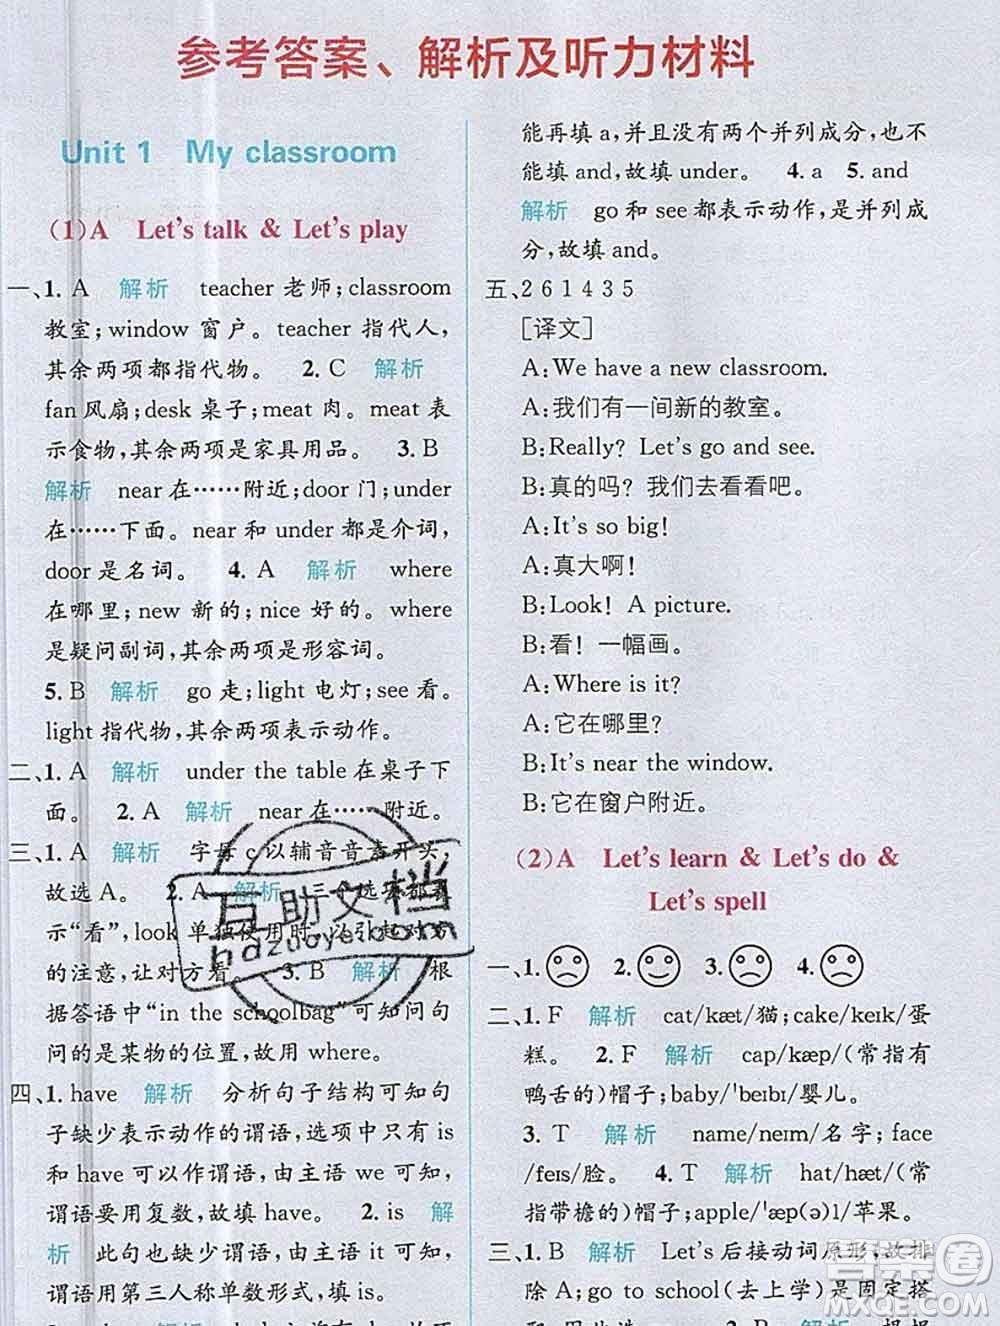 参考答案、解析及听力材料
Unit 1 My classroom
(1)A Let's talk & Let's play
一、1. A 解析 teacher 老师;classroom
教室;window 窗户。teacher 指代人,
其余两项都指代物。 2. C 解析
fan 风扇;desk 桌子;meat 肉。meat 表
示食物,其余两项是家具用品。 3. B
解析 near 在……附近;door 门;under
在……下面。near 和 under 都是介词,
door 是名词。 4. A 解析 where
在哪里;new 新的;nice 好的。where
是疑问副词,其余两项是形容词。
5. B 解析 go 走;light 电灯;see 看。
light 指代物,其余两项表示动作。
二、1. A 解析 under the table 在桌子下
面。 2. A 解析 near 在……附近。
三、1. A 解析 字母 c 以辅音音素开头,
故选 A。 2. A 解析 三个选项都表
示“看”,look 单独使用时,以引起对方
的注意,让对方看。 3. B 解析 根
据答语中“in the schoolbag”可知问句
问的是某物的位置,故用 where。
四、1. have 解析 分析句子结构可知句
子缺少表示动作的谓语,选项中只有 is
和 have 可以作谓语,由主语 we 可知,
谓语要用复数,故填 have。 2. is 解
析 此句也缺少谓语,由主语 it 可知,
谓语用第三人称单数形式,填 is。
能再填 a,并且没有两个并列成分,也不
能填 and,故填 under。 4. a 5. and
解析 go 和 see 都表示动作,是并列成
分,故填 and。
五、2 6 1 4 3 5
[译文]
A:We have a new classroom.
A:我们有一间新的教室。
B:Really? Let's go and see.
B:真的吗? 我们去看看吧。
A:It's so big!
A:真大!
B:Look! A picture.
B:看! 一幅画。
A:Where is it?
A:它在哪里?
B:It's near the window.
B:它在窗户附近。
(2)A Let's learn & Let's do &
Let's spell
一、1. 2. 3. 4.
二、1. F 解析 cat/kæt/猫;cake/keɪk/蛋
糕。 2. F 解析 cap/kæp/(常指有
鸭舌的)帽子;baby/'beɪbɪ/婴儿。
3. T 解析 name/neɪm/名字;face
/feɪs/脸。 4. T 解析 hat/hæt/(常
指带檐的)帽子;apple/'æp(ə)l/苹果。
三、1. B 解析 Let's 后接动词原形,故排
除 A;go to school(去上学)是固定搭
互助文档
hdzuoye.com
答案圈
MXQE.COM